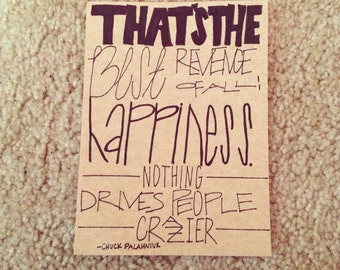 THAT'S THE
Best REVENGE
OF ALL:
happiness.
NOTHING
DRIVES PEOPLE
CRAZIER
-CHUCK PALAHNIUK